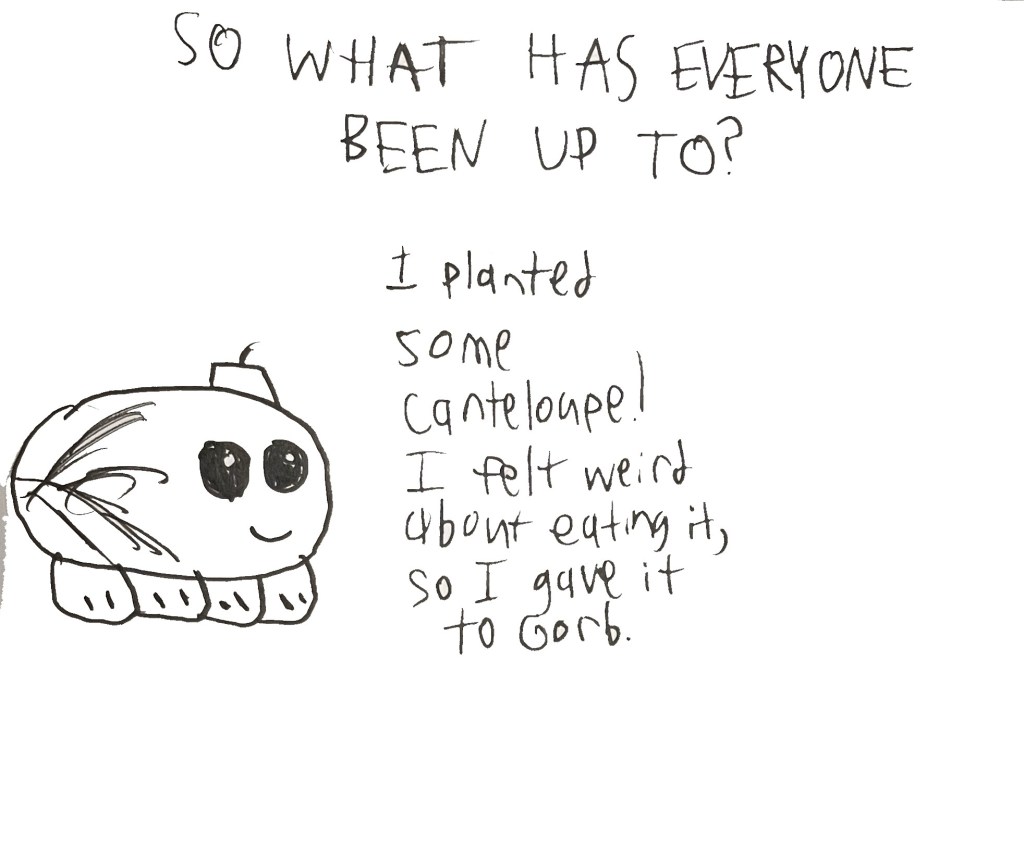 SO WHAT HAS EVERYONE
BEEN UP TO?
I planted
some
canteloupe!
I felt weird
about eating it,
so I gave it
to Gorb.